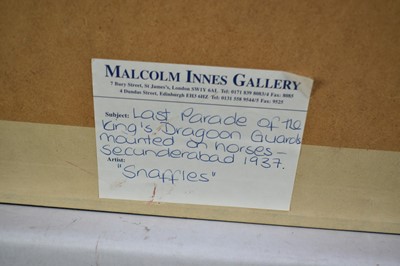 MALCOLM INNES GALLERY
7 Bury Street, St James's, London SW1Y 6AL. Tel: 0171 839 8083/4 Fax: 8085
4 Dundas Street, Edinburgh EH3 6HZ Tel: 0131 558 9544/5 Fax: 9525
Subject: Last Parade of the
King's Dragoon Guards
mounted on horses -
Secunderabad 1937.
Artist:
"Snaffles"